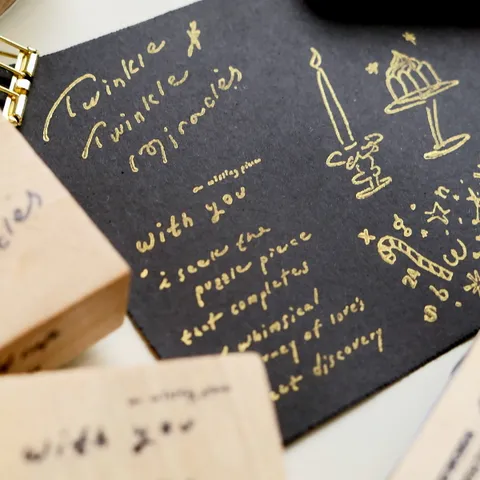 Twinkle
Twinkle
Miracles
a missing piece
with you
i seek the
puzzle piece
that completes
whimsical
of love's
discovery
24
a missing piece
with you